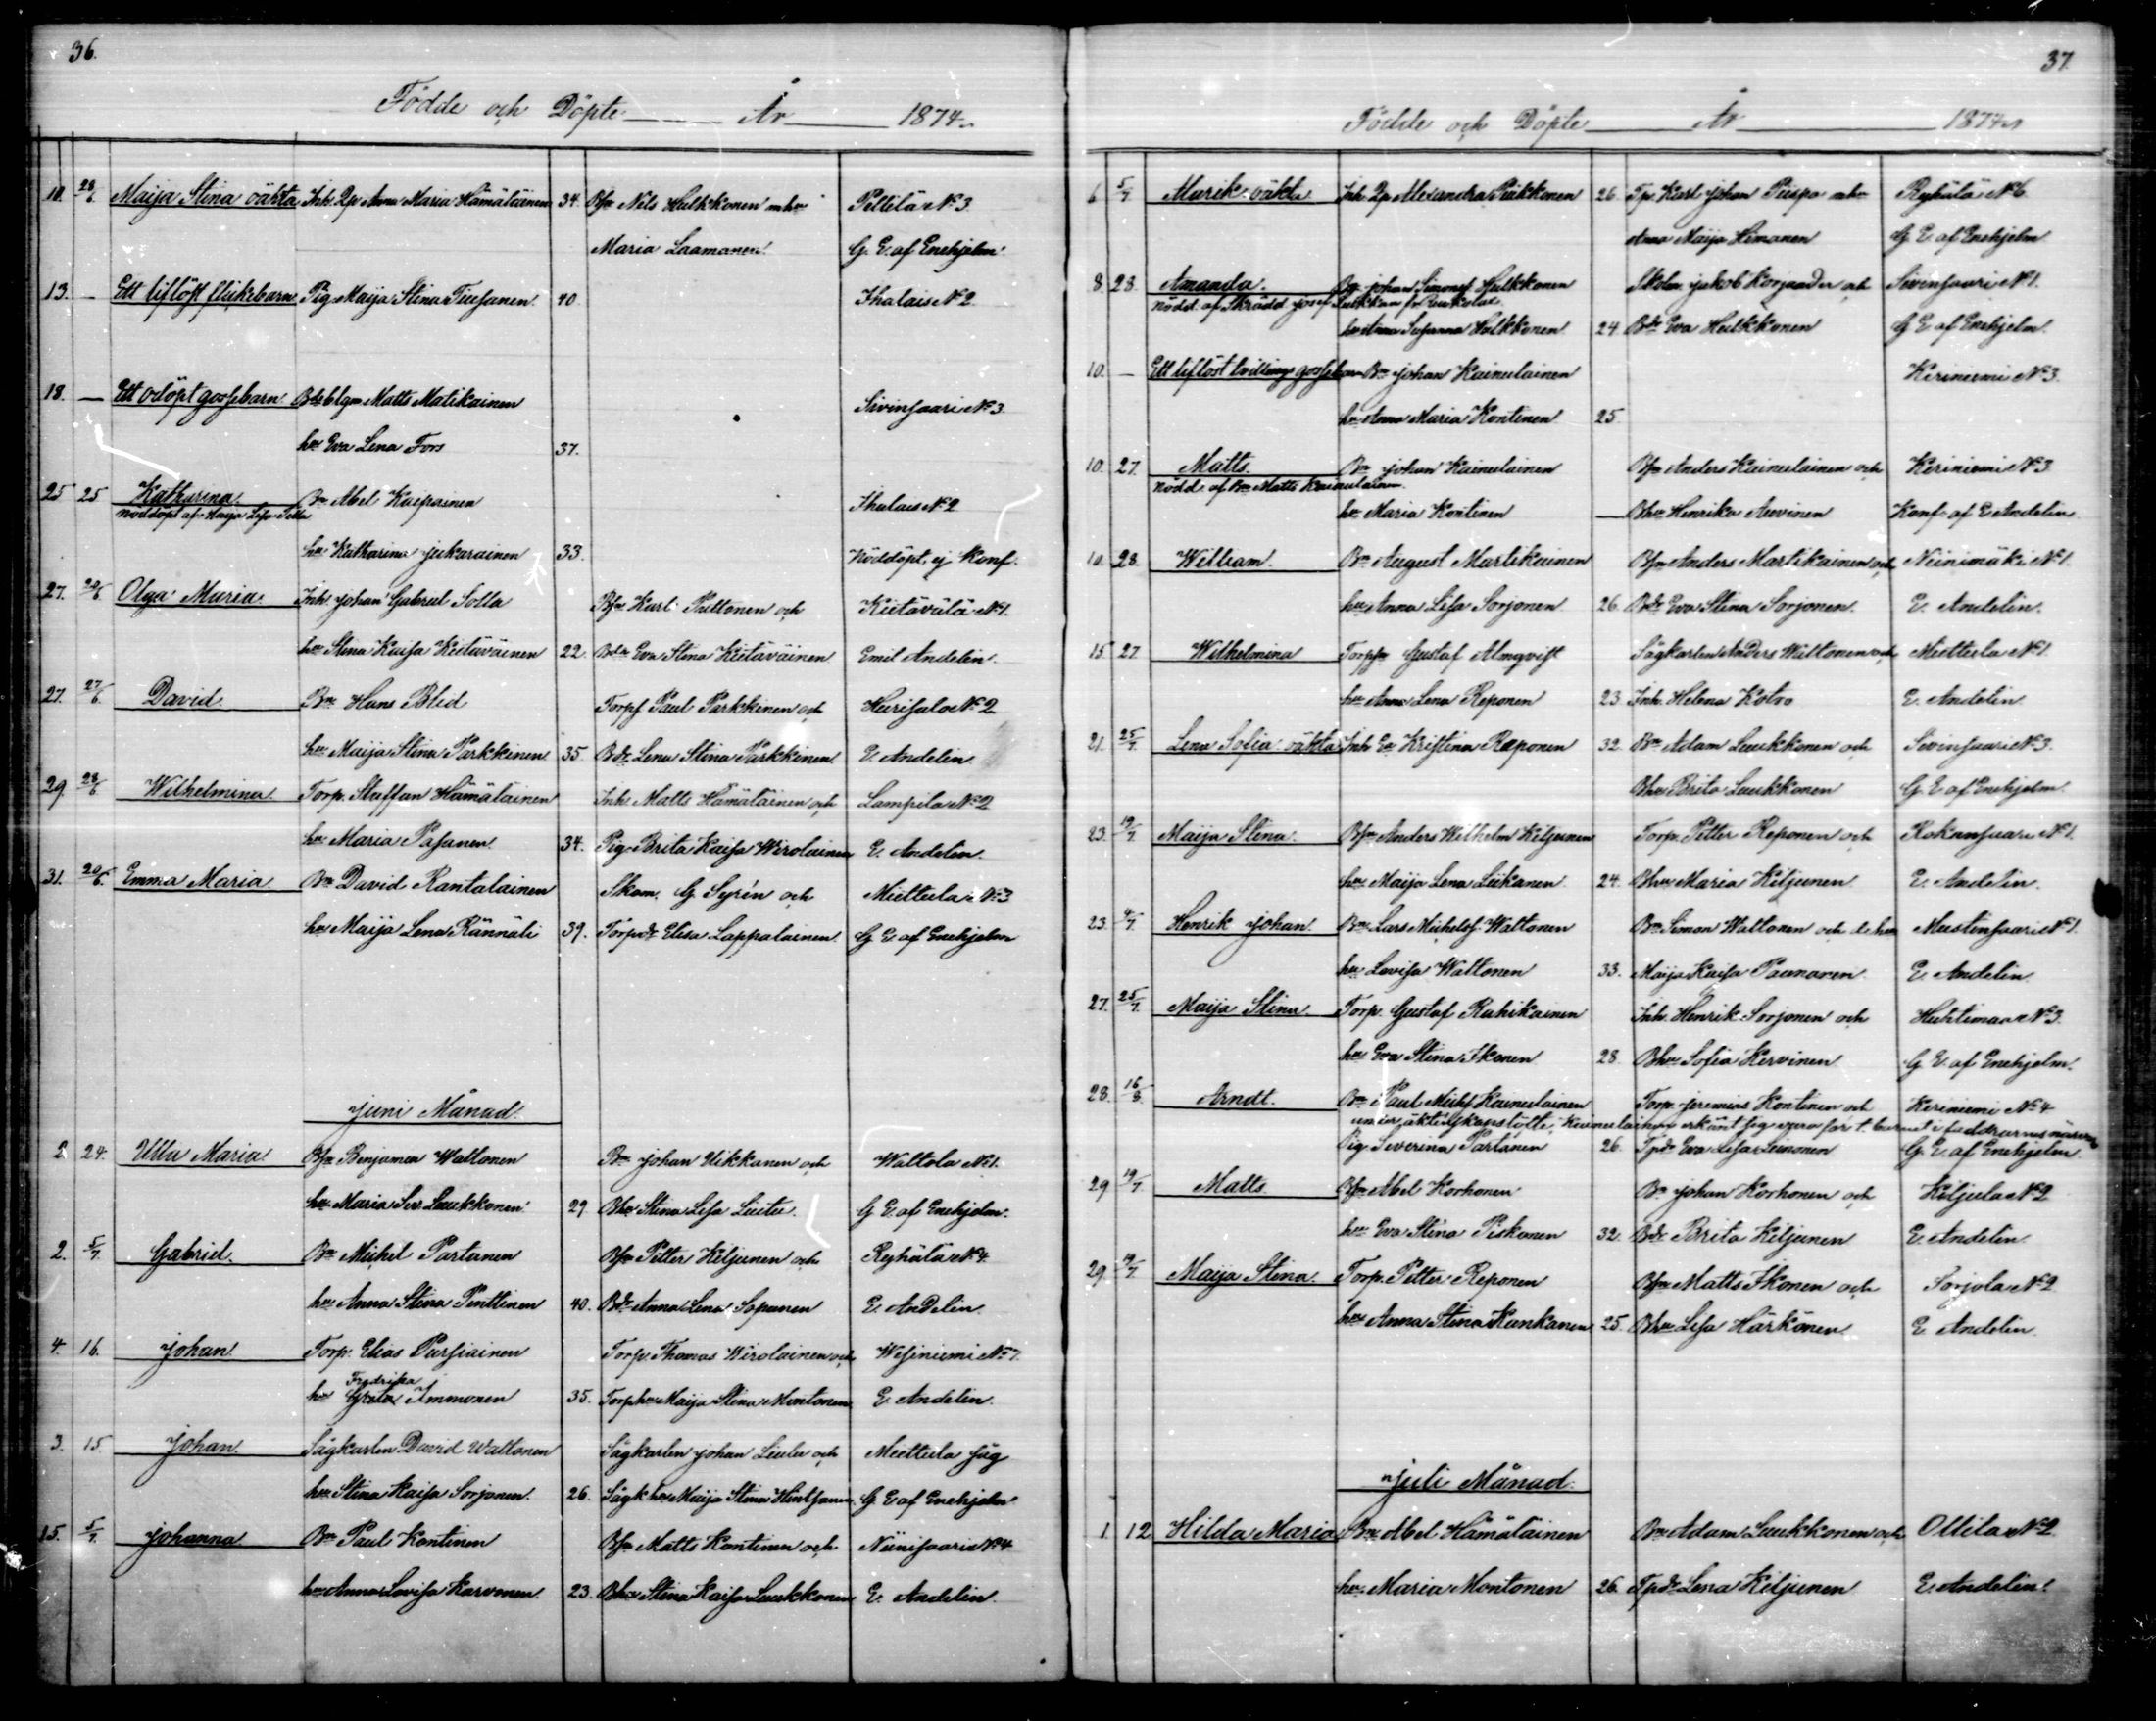 36.
Födde och Döpte År 1874.
10. 28/6 Maija Stina oäkta Inh. Dp Anna Maria Hämäläinen 34. Bfn Nils Hulkkonen mhu Pellilä N:3
Maria Laamanen G. E. af Enehjelm
13. — Ett liflöst flickebarn Pig. Maija Stina Tiusanen 40. Ihalais N:2
18. — Ett odöpt gossebarn Matts Matikainen Sivinsaari N:3
hu Eva Lena Fors 37.
25 25 Katharina Bn Abel Kaipainen Ihalais N:2
nöddöpt af Maija Lisa
hu Katharina Jukarainen 33. Nöddöpt, ej Konf.
27. 20/6 Olga Maria Inh. Johan Gabriel Solla Bfn Karl Pulkkonen och Kiitävälä N:1.
hu Stina Kaisa Kiitäväinen 22. Bdr Eva Stina Kiitäväinen Emil Andelin.
27. 27/6 David Bn Hans Blid Torpf Paul Parkkinen och Huisalo N:2
hu Maija Stina Parkkinen 35 Bdr Lena Stina Parkkinen E. Andelin
29. 28/6 Wilhelmina Torp. Staffan Hämäläinen Inh. Matts Hämäläinen och Lampila N:2
hu Maria Pasanen 34. Pig. Brita Kaisa Wirolainen E. Andelin.
31. 20/6 Emma Maria Bn David Rantalainen Skom. G Syrén och Miettula N:3
hu Maija Lena Kännäli 39. Torpdr Elisa Lappalainen G E. af Enehjelm
Juni Månad
2. 24. Ulla Maria Bfn Benjamin Waltonen Bn Johan Ukkanen och Waltola N:1.
hu Maria Luukkonen 29 Bhu Stina Lisa Liuttu. G E. af Enehjelm.
2. 5/7 Gabriel Bn Michel Partanen Bfn Petter Kiljunen och Ryhälä N:4
hu Anna Stina Penttinen 40. Bdr Anna Lena Sopanen E. Andelin
4. 16. Johan Torp. Elias Pursiainen Torp. Thomas Wirolainen och Wesiniemi N:7
Fredrika
hu Greta Ammonen 35. Torphu Maija Stina Montonen E. Andelin.
3. 15. Johan Sågkarlen David Waltonen Sågkarlen Johan och Miettula såg
hu Stina Kaisa Sorjonen 26. Sågk hu Maija Stina G. E af Enehjelm
15. 5/7 Johanna Bn Paul Kontinen Bfn Matts Kontinen och Niinisaari N:4
hu Anna Lovisa Karvonen. 23. Bhu Stina Kaisa Luukkonen E. Andelin.
37.
Födde och Döpte År 1874
6 5/7 Murik oäkta Inh. Dp Alexandra Pukkonen 26. Tp. Karl Johan mhu Ryhälä N:6
Anna Maija Himanen G. E. af Enehjelm
8. 28. Amanda. Bn Johan Simonsf Hulkkonen Skolm. Jakob Korjander och Sivinsaari N:1.
nödd. af Skrädd Josef Luikkan fr Ruokolax
hu Anna Susanna Hulkkonen 24. Bdr Eva Hulkkonen G E af Enehjelm.
10. — Ett liflöst tvillings gossebarn Bn Johan Kainulainen Keriniemi N:3.
hu Anna Maria Kontinen 25
10. 27. Matts. Bn Johan Kainulainen Bfn Anders Kainulainen och Keriniemi N:3
nödd. af Bn Matts Kainulainen
hu Maria Kontinen — Bhu Henrika Auvinen Konf. af E Andelin.
10. 28. William. Bn August Martikainen Bfn Anders Martikainen och Niinimäki N:1.
hu Anna Lisa Sorjonen 26. Bdr Eva Stina Sorjonen. E. Andelin.
15 27. Wilhelmina Torpfn Gustaf Almqvist Sågkarlen Anders Wiltonen och Miettula N:1
hu Anna Lena Reponen 23. Inh. Helena Kolvo E. Andelin.
21. 25/7 Lena Sofia oäkta Inh Ea Kristina Reponen 32. Bn Adam Luukkonen och Sivinsaari N:3.
Bhu Brita Luukkonen G. E af Enehjelm.
23. 19/7 Maija Stina. Bfn Anders Wilhelm Kiljunen Torp. Petter Reponen och Kokansaari N:1
hu Maija Lena Liikanen 24. Bhu Maria Kiljunen E. Andelin.
23. 4/7 Henrik Johan. Bn Lars Michelsf. Waltonen Bn Simon Waltonen och d. hu Mustinsaari N:1.
hu Lovisa Waltonen 33. Maija Kaisa Paunonen E. Andelin
27. 25/7 Maija Stina Torp. Gustaf Rahikainen Inh. Henrik Sorjonen och Huhtimaa N:3
hu Eva Stina Ikonen 28. Bhu Sofia Kervinen G E. af Enehjelm.
28. 16/8 Arndt. Bn Paul Michsf Kainulainen Torp. Jeremias Kontinen och Keriniemi N:4
under äktenskapslöfte, Kainulainen erkänt sig vara far t. barnet i faddrarnes närvaro
Pig Severina Partanen 26. Tpdr Eva Lisa Leinonen G. E. af Enehjelm.
29 19/7 Matts Bfn Abel Korhonen Bn Johan Korhonen och Kiljula N:2
hu Eva Stina Piskonen 32. Bdr Brita Kiljunen E. Andelin
29. 19/7 Maija Stina. Torp. Petter Reponen Bfn Matts Ikonen och Sorjola N:2
hu Anna Stina Kankanen 25. Bhu Lisa Härkönen E Andelin.
Juli Månad.
1. 12 Hilda Maria Bn Abel Hämäläinen Bn Adam Luukkonen och Ollila N:2
hu Maria Montonen 26. Tpdr Lena Kiljunen E. Andelin.